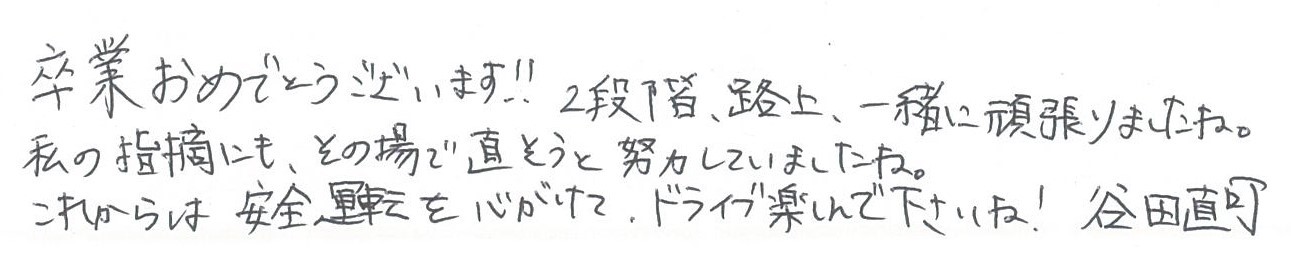 卒業おめでとうございます!! 2段階、路上、一緒に頑張りましたね。
私の指摘にも、その場で直そうと努力していましたね。
これからは安全運転を心がけて、ドライブ楽しんで下さいね! 谷田直可